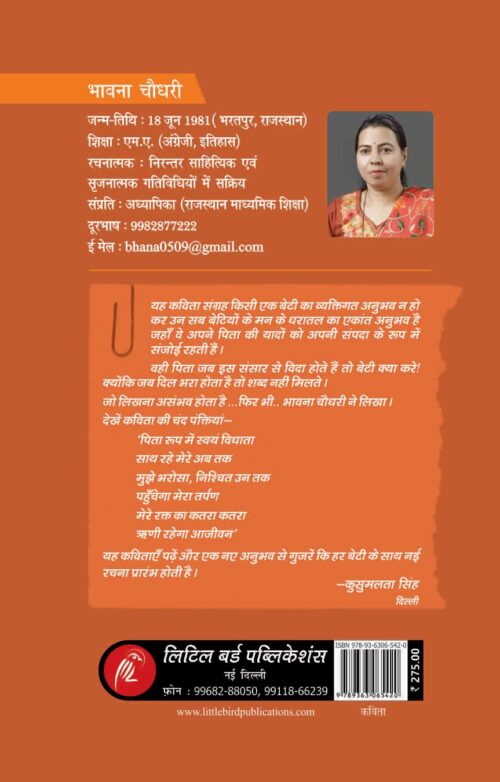 भावना चौधरी
जन्म-तिथि : 18 जून 1981( भरतपुर, राजस्थान)
शिक्षा : एम.ए. (अंग्रेजी, इतिहास)
रचनात्मक : निरन्तर साहित्यिक एवं
सृजनात्मक गतिविधियों में सक्रिय
संप्रति : अध्यापिका (राजस्थान माध्यमिक शिक्षा)
दूरभाष : 9982877222
ई मेल : bhana0509@gmail.com
यह कविता संग्रह किसी एक बेटी का व्यक्तिगत अनुभव न हो
कर उन सब बेटियों के मन के धरातल का एकांत अनुभव है
जहाँ वे अपने पिता की यादों को अपनी संपदा के रूप में
संजोई रहती है ।
वही पिता जब इस संसार से विदा होते हैं तो बेटी क्या करे!
क्योंकि जब दिल भरा होता है तो शब्द नहीं मिलते ।
जो लिखना असंभव होता है ...फिर भी.. भावना चौधरी ने लिखा ।
देखें कविता की चंद पंक्तियां–
‘पिता रूप में स्वयं विधाता
साथ रहे मेरे अब तक
मुझे भरोसा, निश्चित उन तक
पहुँचेगा मेरा तर्पण
मेरे रक्त का कतरा कतरा
ऋणी रहेगा आजीवन’
यह कविताएँ पढ़ें और एक नए अनुभव से गुजरें कि हर बेटी के साथ नई
रचना प्रारंभ होती है ।
–कुसुमलता सिंह
दिल्ली
लिटिल बर्ड पब्लिकेशंस
नई दिल्ली
फ़ोन : 99682-88050, 99118-66239
www.littlebirdpublications.com
ISBN 978-93-6306-542-0
9789363065420
₹ 275.00
कविता